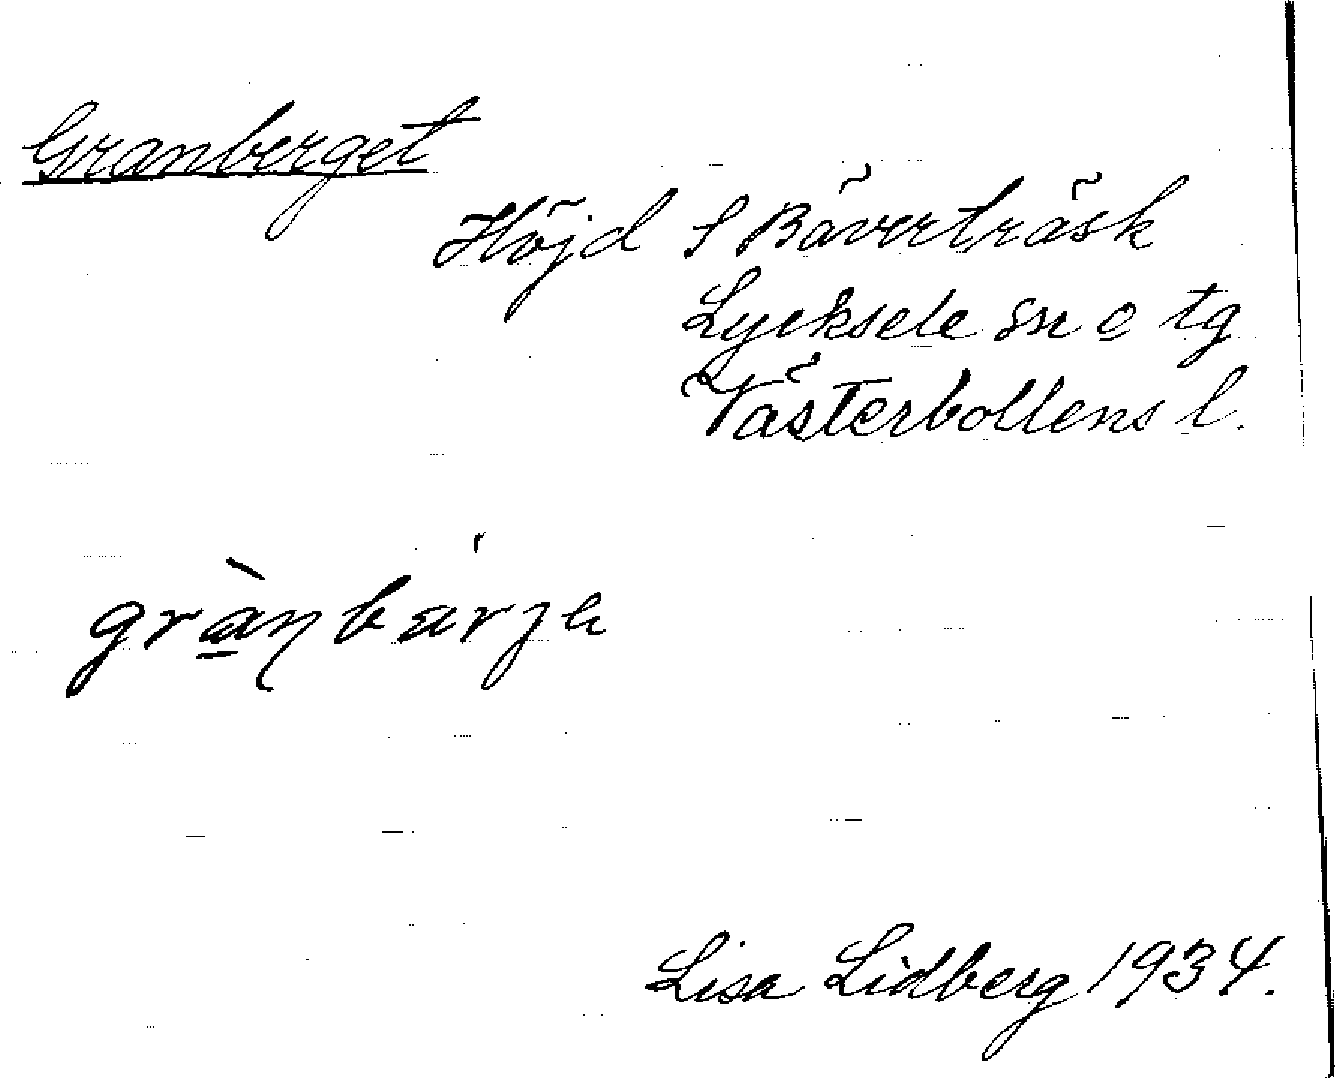 Granberget
Höjd S Bäverträsk
Lycksele sn o tg
Västerbottens l.
Lisa Lidberg 1934.